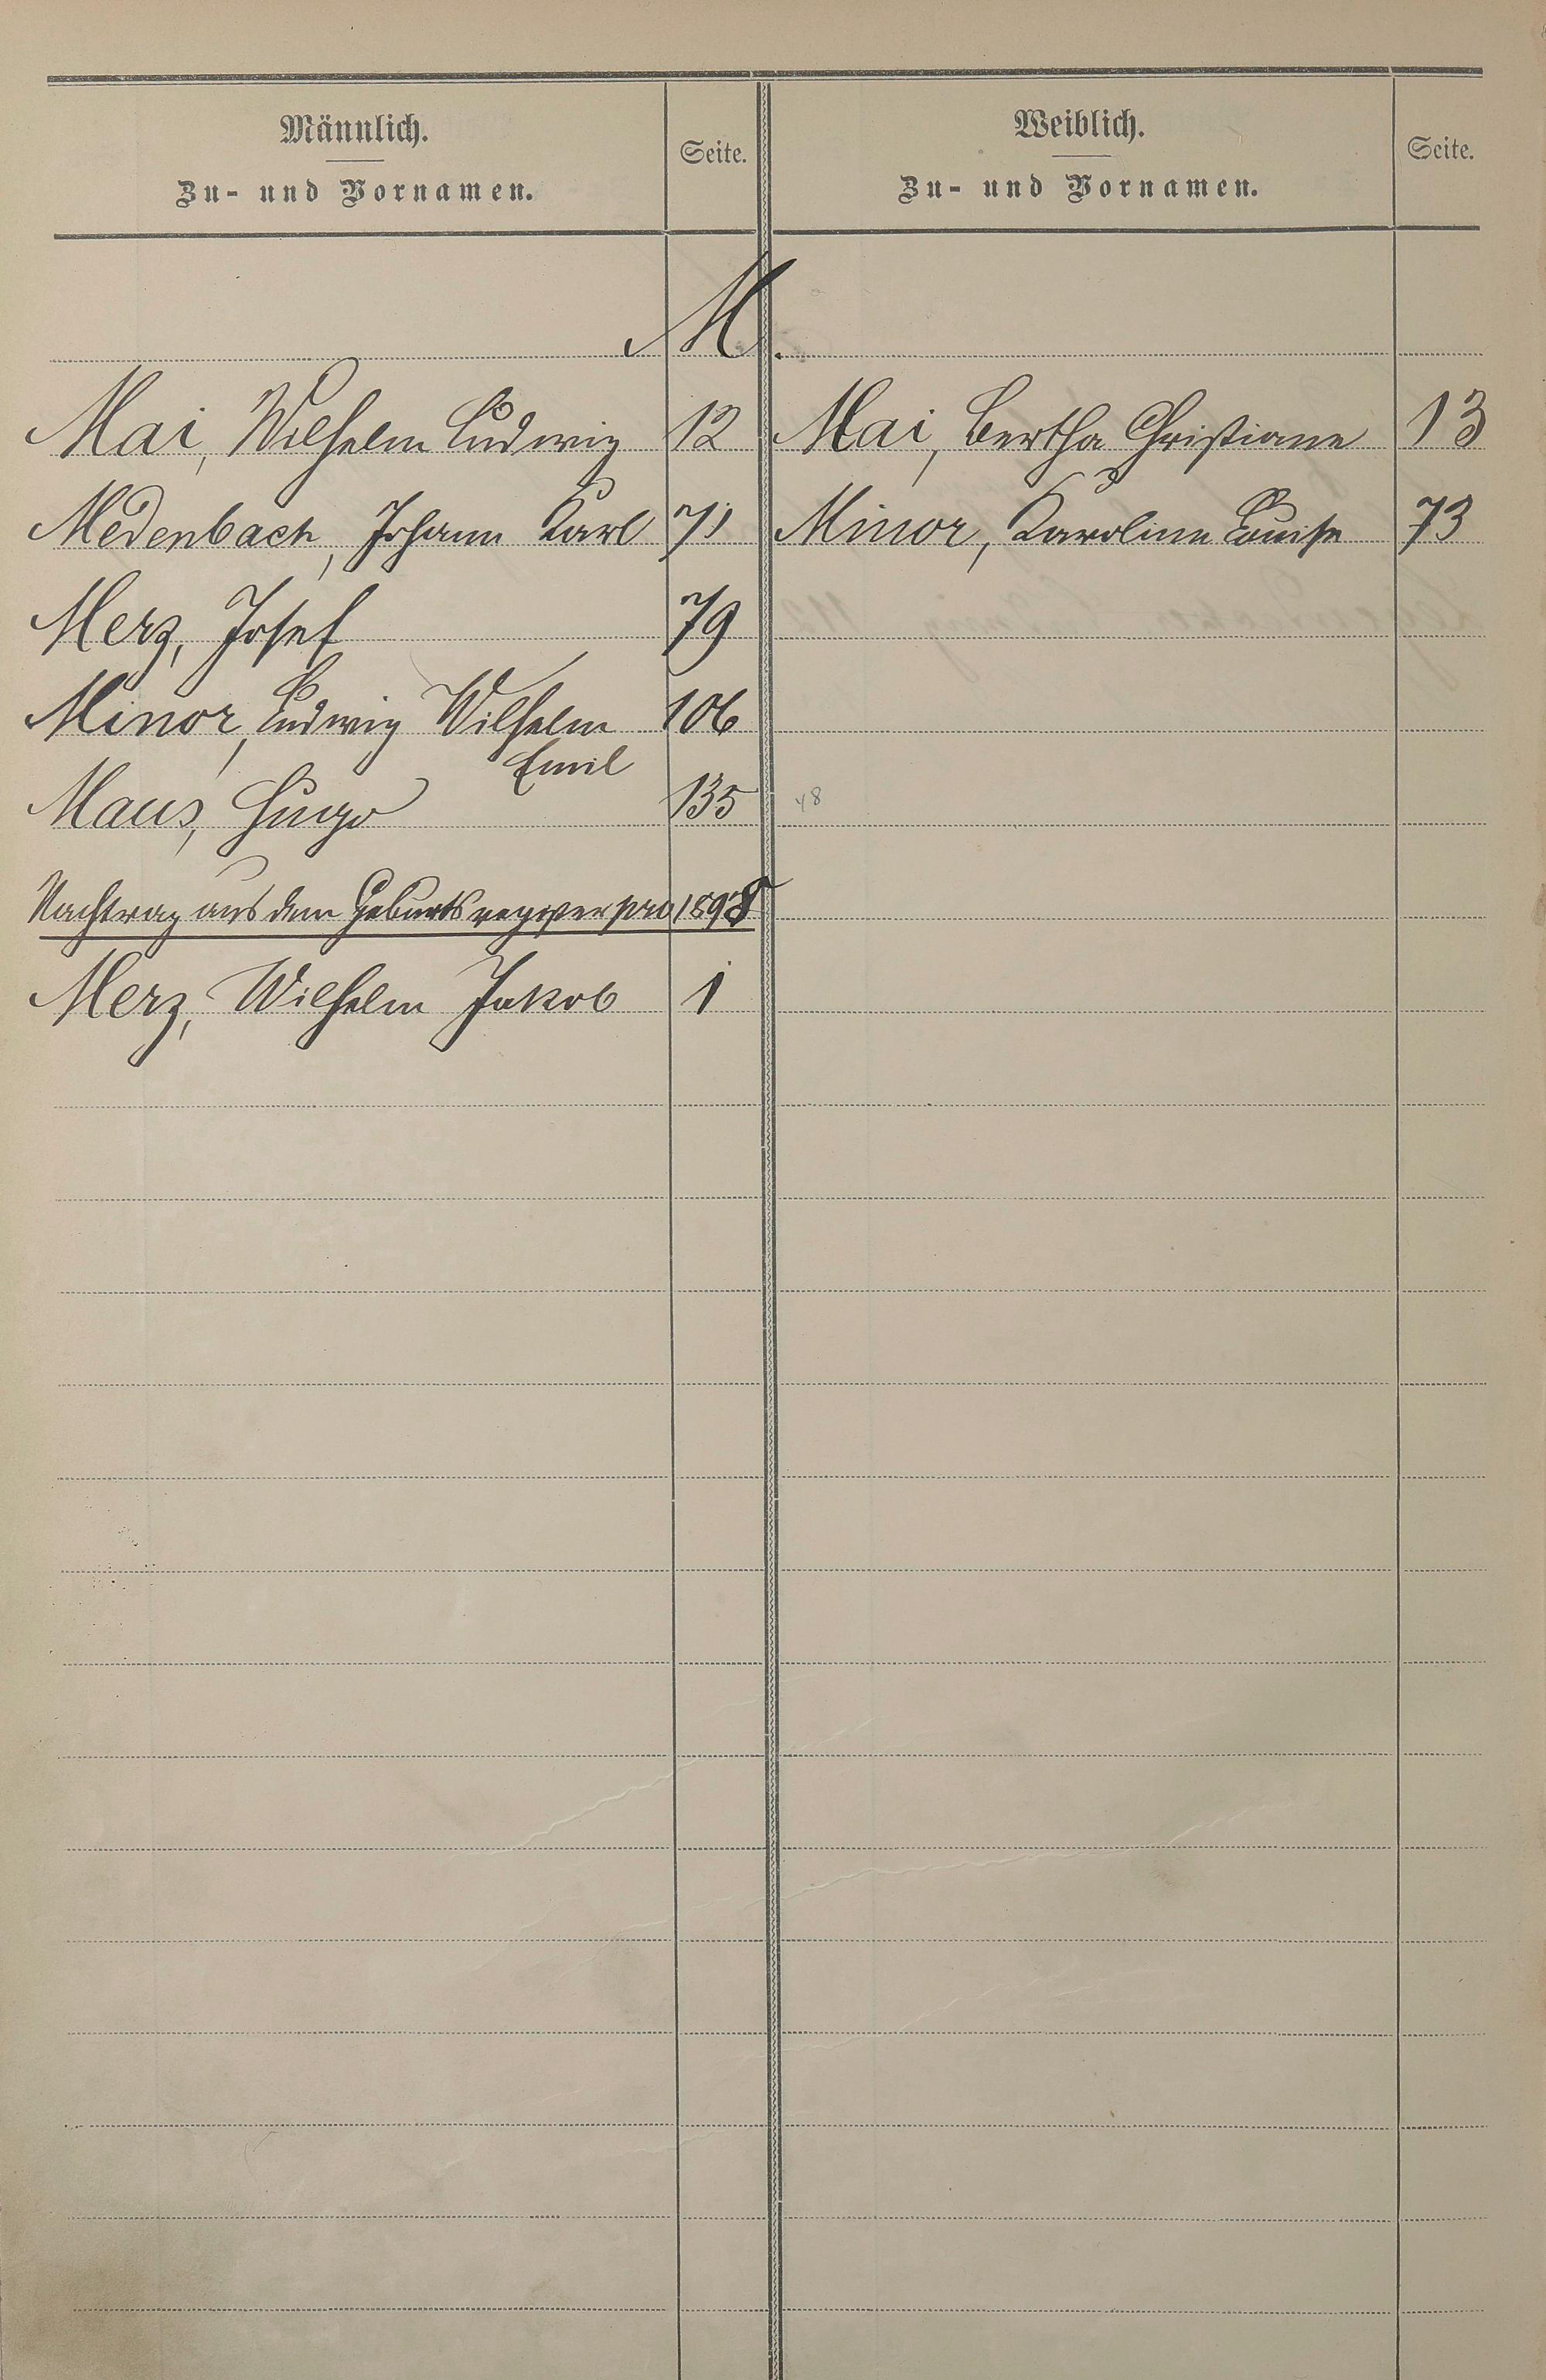 Männlich.
Zu- und Vornamen.
Seite.
Weiblich.
Zu- und Vornamen.
Seite.
M.
Mai, Wilhelm Ludwig 12 Mai, Bertha Christiane 13
Medenbach, Johann Karl 71 Minor, Karoline Louise 73
Merz, Josef 79
Minor, Ludwig Wilhelm 106
Emil
Maus, Hugo 135 48
Nachtrag aus dem Geburtsregister pro 1898
Merz, Wilhelm Jakob 1